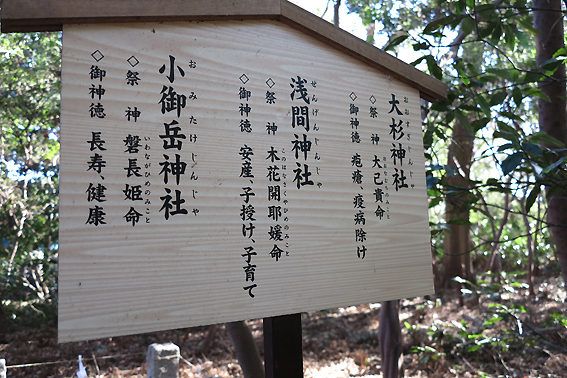 大杉神社
おおすぎじんじゃ
◇祭 神 大己貴命
◇御神徳 疱瘡、疫病除け
浅間神社
せんげんじんじゃ
◇祭 神 木花開耶媛命
このはなさくやひめのみこと
◇御神徳 安産、子授け、子育て
小御岳神社
おみたけじんじゃ
◇祭 神 磐長姫命
いわながひめのみこと
◇御神徳 長寿、健康